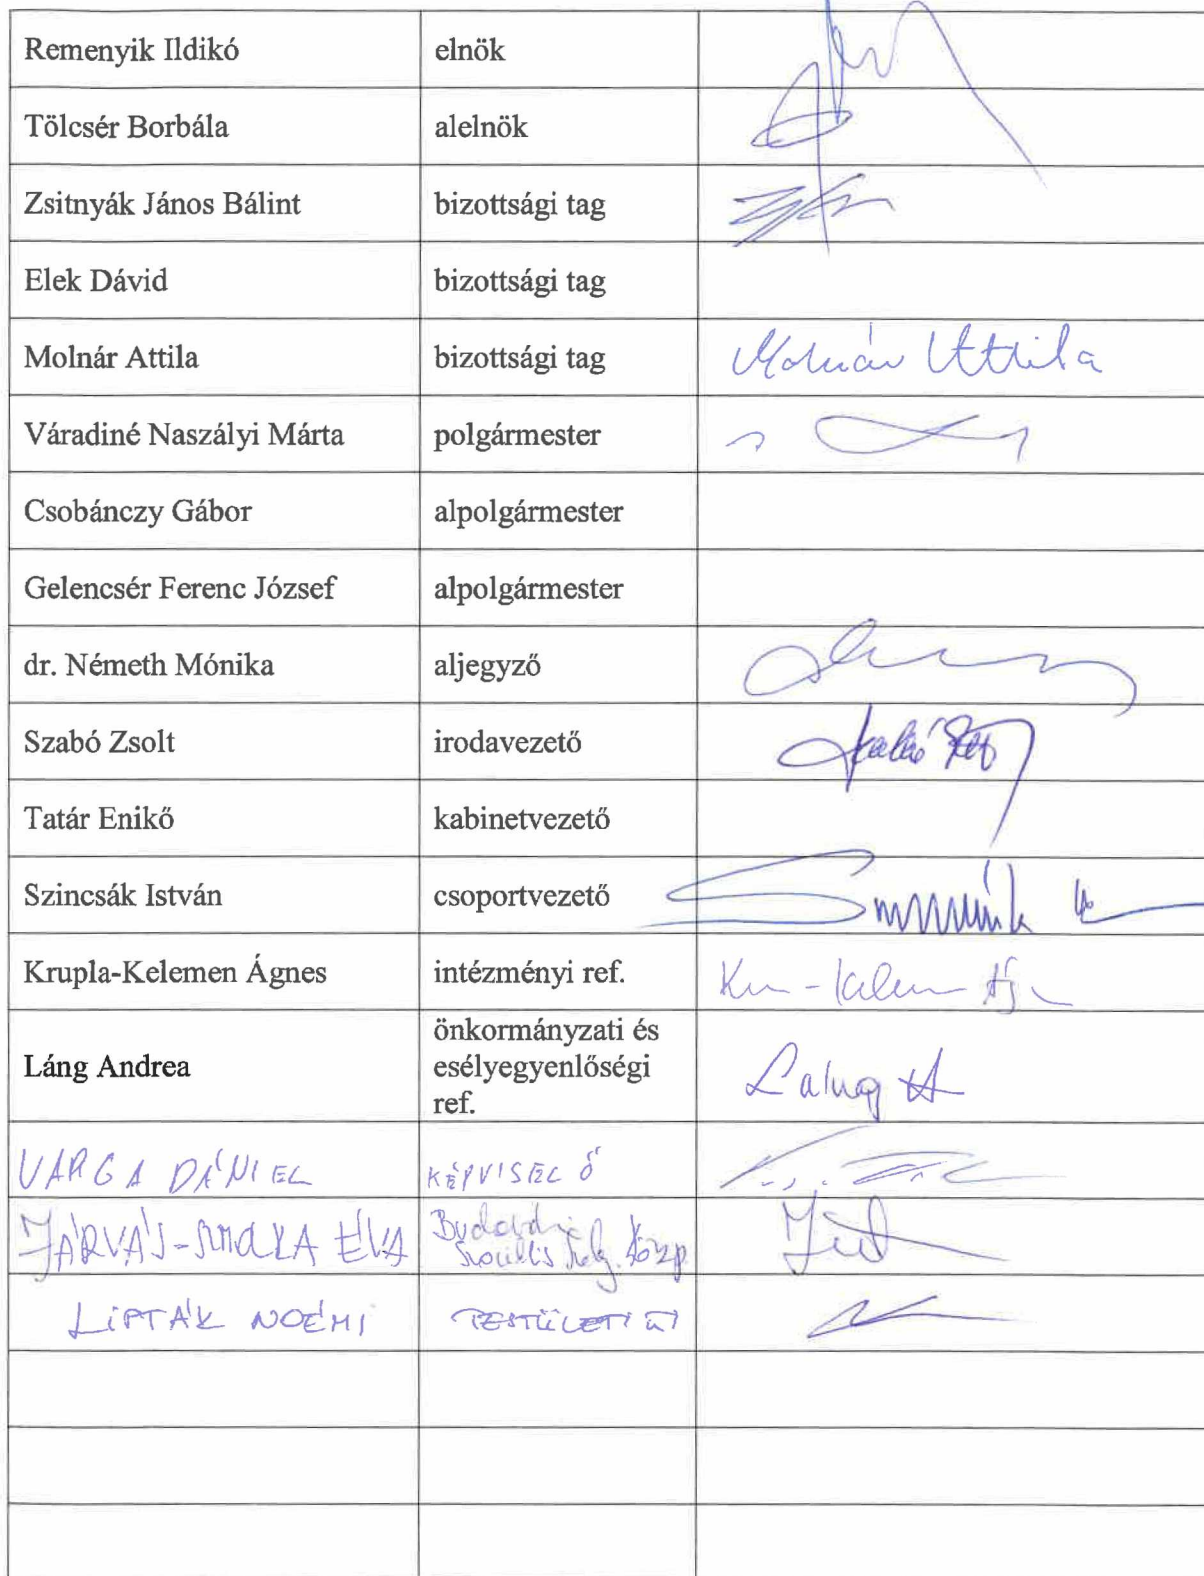 Remenyik Ildikó elnök
Tölcsér Borbála alelnök
Zsitnyák János Bálint bizottsági tag
Elek Dávid bizottsági tag
Molnár Attila bizottsági tag Molnár Attila
Váradiné Naszályi Márta polgármester
Csobánczy Gábor alpolgármester
Gelencsér Ferenc József alpolgármester
dr. Németh Mónika aljegyző
Szabó Zsolt irodavezető Szabó
Tatár Enikő kabinetvezető
Szincsák István csoportvezető
Krupla-Kelemen Ágnes intézményi ref.
Láng Andrea önkormányzati és
esélyegyenlőségi
ref.
VARGA DÁNIEL KÉPVISELŐ
ÉVA
LIPTÁK NOÉMI TESTÜLETI